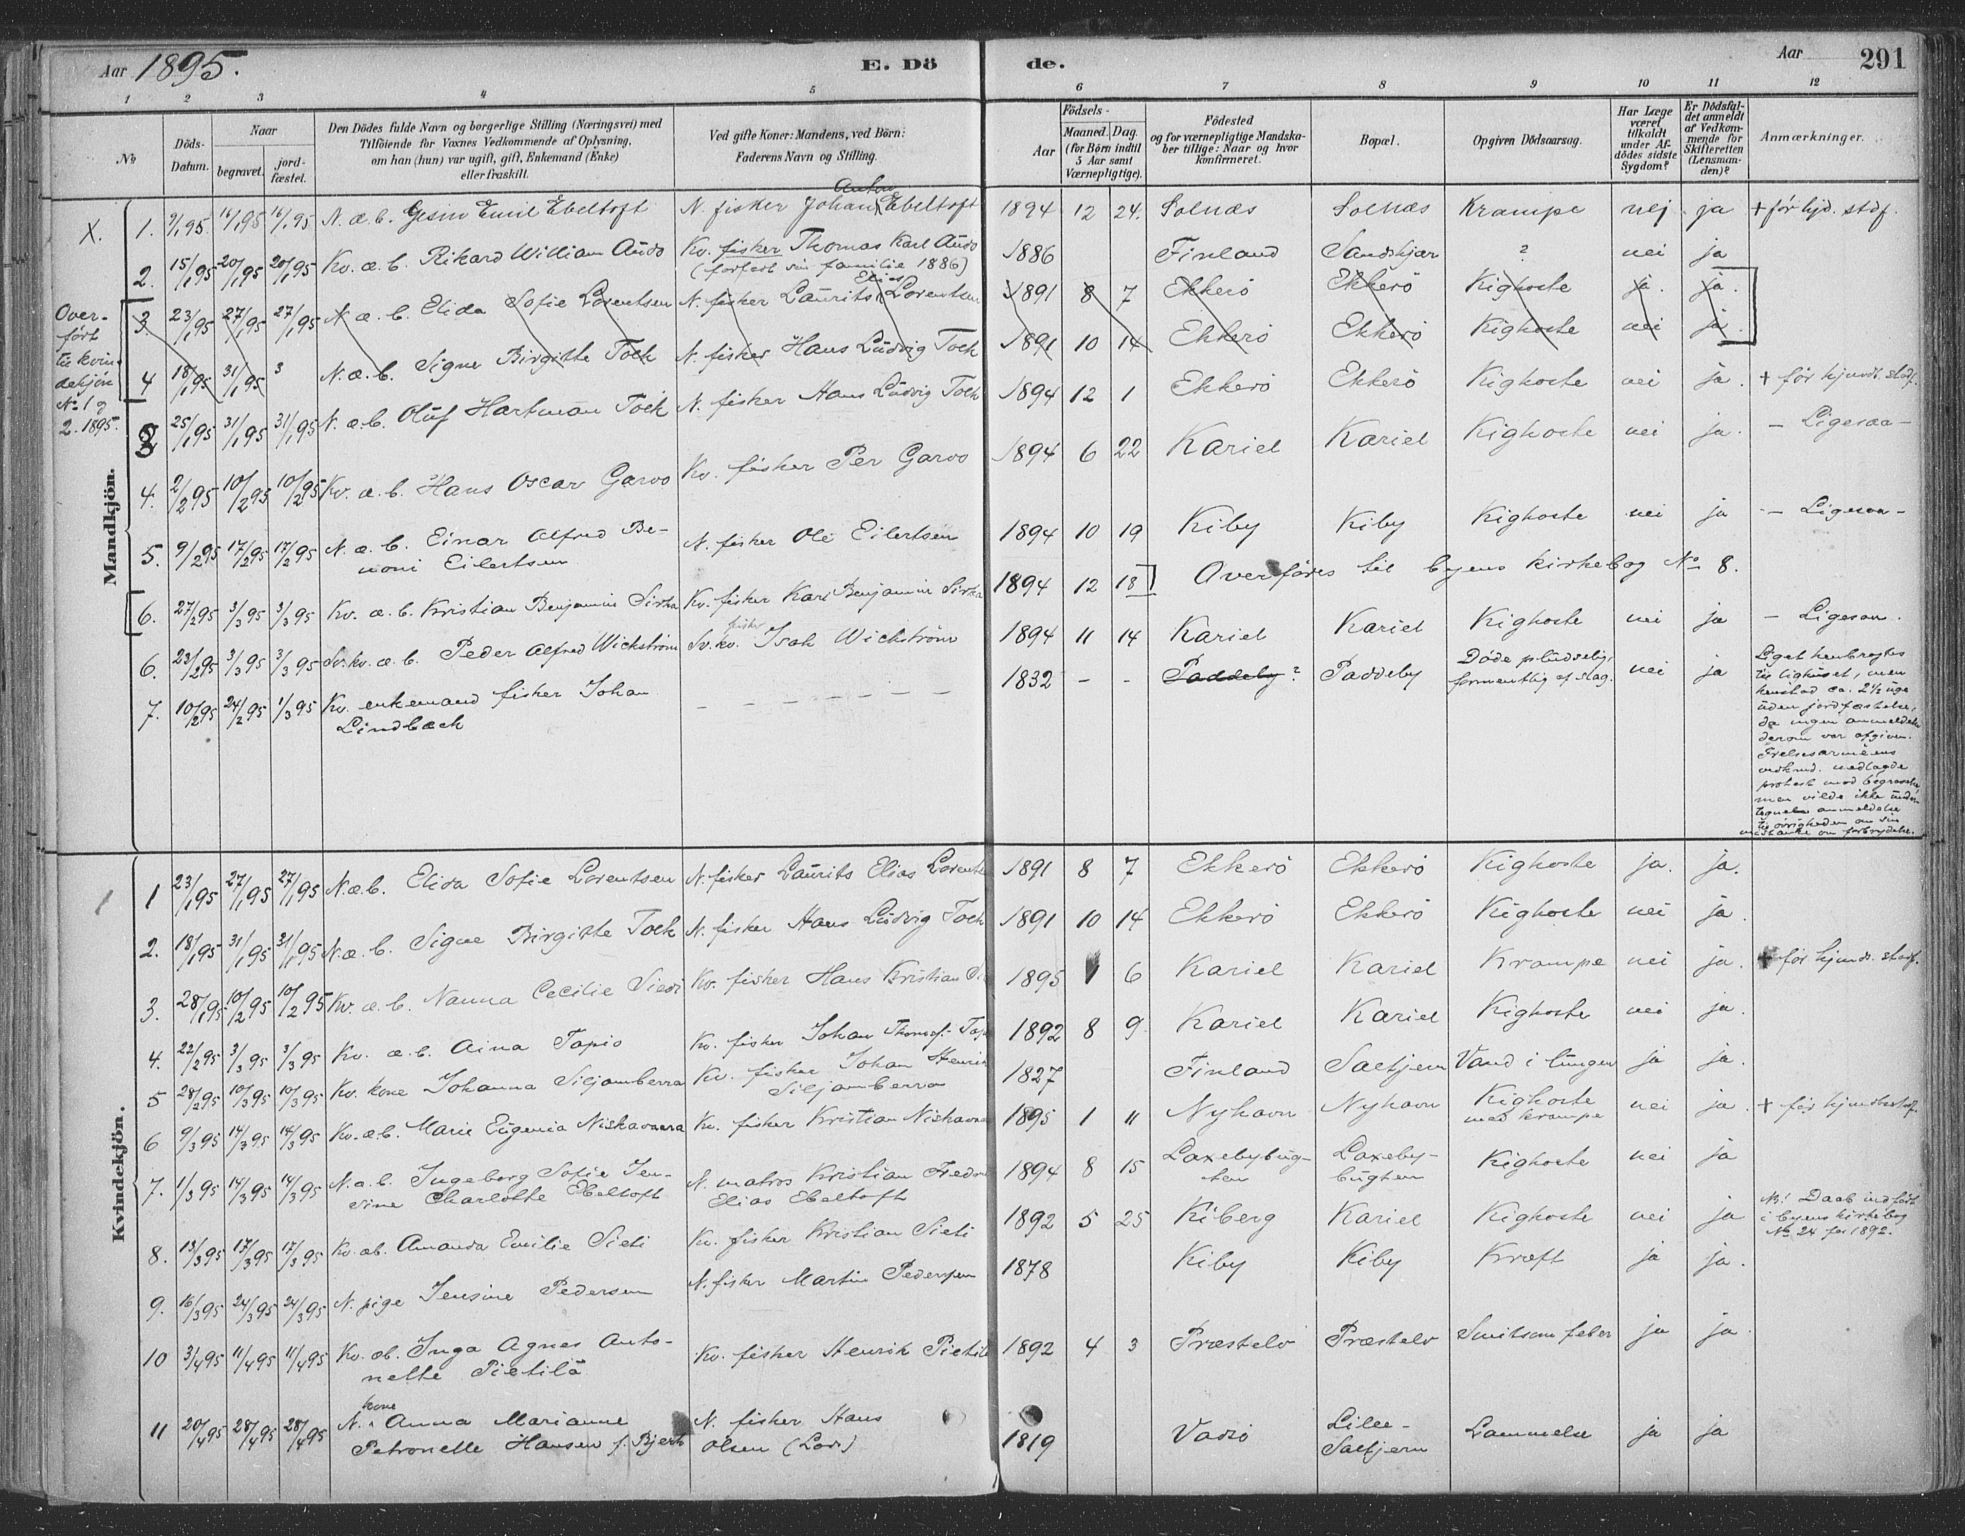 Aar 1895. E. Dö de. Aar 291
1 2 3 4 5 6 7 8 9 10 11 12
No
Döds-Datum.
Naar
begravet. jordfæstet.
Den Dödes fulde Navn og borgerlige Stilling (Næringsvei) med
Tilföiende for Voxnes Vedkommende af Oplysning,
om han (hun) var ugift, gift, Enkemand (Enke)
eller fraskilt.
Ved gifte Koner: Mandens, ved Börn:
Faderens Navn og Stilling.
Födsels-
Aar Maaned. Dag.
(for Börn indtil
5 Aar samt
Værnepligtige).
Födested
og for værnepligtige Mandska-
ber tillige: Naar og hvor
konfirmeret.
Bopæl.
Opgiven Dödsaarsag.
Har Læge
været
tilkaldt
under Af-
dödes sidste
Sygdom?
Er Dödsfal-
det anmeldt
af Vedkom-
mende for
Skifteretten
(Lensman-
den)?
Anmærkninger.
Mandkjön.
X. 1. 9/1 95 16/1 95 16/1 95 N. æ. b. Gesin Emil Ebeltoft N. fisker Johan Anton Ebeltoft 1894 12 24. Solnæs Solnæs Krampe nej ja + før hjd. stdf.
2. 15/1 95 20/1 95 20/1 95 Kv. æ. b. Rikard William Audo Kv. fisker Thomas Karl Audo 1886 Finland Sandskjær ? nei ja
(forlort sin familie 1886)
Over-
ført
til kvin-
dekjön
No 1 og
2. 1895.
3. 23/1 95 27/1 95 27/1 95 N. æ. b. Elida Sofie Lorentsen N. fisker Laurits Elias Lorentsen 1891 8 7 Ekkerö Ekkerö Kighoste ja. ja.
4 18/1 95 31/1 95 3 N. æ. b. Signe Birgitte Tock N. fisker Hans Ludvig Tock 1891 10 14 Ekkerö Ekkerö Kighoste nei ja.
3 25/1 95 31/1 95 31/1 95 N. æ. b. Oluf Hartman Tock N. fisker Hans Ludvig Tock 1894 12 1 Ekkerö Ekkerö Kighoste nei ja. + før hjemd. stadf.
4. 2/2 95 10/2 95 10/2 95 Kv. æ. b. Hans Oscar Garvo Kv. fisker Per Garvo 1894 6 22 Kariel Kariel Kighoste nei ja. – Ligesaa –
5. 9/2 95 17/2 95 17/2 95 N. æ. b. Einar Alfred Be-
noni Eilertsen N. fisker Ole Eilertsen 1894 10 19 Kiby Kiby Kighoste nei ja – Ligesaa –
6. 27/2 95 3/3 95 3/3 95 Kv. æ. b. Kristian Benjamin Sirka Kv. fisker Karl Benjamin Sirka 1894 12 18 Overføres til byens kirkebog No 8.
6. 23/2 95 3/3 95 3/3 95 Sv. kv. æ. b. Peder Alfred Wickström Sv. kv. fisker Isak Wickström 1894 11 14 Kariel Kariel Kighoste nei ja – Ligesaa.
7. 10/2 95 24/2 95 1/3 95 Kv. enkemand fisker Johan
Lindbæck – – – – – – 1832 – – Paddeby ? Paddeby Döde pludselig,
formentlig af slag. nei ja
Liget henbragtes
til lighuset, men
henstod ca. 2½ uge
uden jordfæstelse,
da ingen anmeldelse
derom var afgiven.
Frelsesarméens
vedkmd. nedlagde
protest mod begravelse
men vilde ikke under-
tegne anmeldelse
til övrigheden om sin
mistanke om forbrydelse.
Kvindekjön.
1 1 23/1 95 27/1 95 27/1 95 N. æ. b. Elida Sofie Lorentsen N. fisker Laurits Elias Lorents 1891 8 7 Ekkerö Ekkerö Kighoste ja. ja.
2. 18/1 95 31/1 95 31/1 95 N. æ. b. Signe Birgitte Tock N. fisker Hans Ludvig Tock 1891 10 14 Ekkerö Ekkerö Kighoste nei ja.
3. 28/1 95 10/2 95 10/2 95 Kv. æ. b. Nanna Cecilie Siedi Kv. fisker Hans Kristian 1895 1 6 Kariel Kariel Krampe nei ja. + før hjemd. stadf.
4. 22/2 95 3/3 95 3/3 95 Kv. æ. b. Aina Tapio Kv. fisker Johan Thomsf. Tap 1892 8 9 Kariel Kariel Kighoste nei ja.
5 28/2 95 10/3 95 10/3 95 Kv. kone Johanna Siljamberra Kv. fisker Johan Henrik
Siljamberra 1827 Finland Saltjern Vand i lungen ja ja.
6 9/3 95 14/3 95 14/3 95 Kv. æ. b. Marie Eugenia Niskavaara Kv. fisker Kristian Niskavaa 1895 1 11 Nyhavn Nyhavn Kighoste
med krampe nei ja. + før hjemdbstadf.
7. 1/3 95 14/3 95 14/3 95 N. æ. b. Ingeborg Sofie Jen-
sine Charlotte Ebeltoft N. matros Kristian Fredr
Elias Ebeltoft 1894 8 15 Laxebybug-
ten Laxeby-
bugten Kighoste nei ja
8. 13/3 95 17/3 95 17/3 95 Kv. æb. Amanda Emilie Sieti Kv. fisker Kristian Sieti 1892 5 25 Kiberg Kariel Kighoste nei ja NB! Daab indført
i byens kirkebog
No 24 for 1892.
9. 16/3 95 24/3 95 24/3 95 N. pige Jensine Pedersen N. fisker Martin Pedersen 1878 Kiby Kiby Kræft ja ja.
10 3/4 95 11/4 95 11/4 95 Kv. æb. Inga Agnes Anto-
nette Pietilä Kv. fisker Henrik Pietilä 1892 4 3 Præstelv Præstelv Smitsom feber ja ja.
11 20/4 95 28/4 95 28/4 95 N. kone Anna Marianne
Petronelle Hansen f. Bjert N. fisker Hans
Olsen (Lods) 1819 Vadsö Lille-
Saltjern Lammelse ja ja